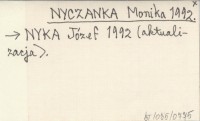 NYCZANKA Monika 1992.
→ NYKA Józef 1992 (aktuali-
zacja).